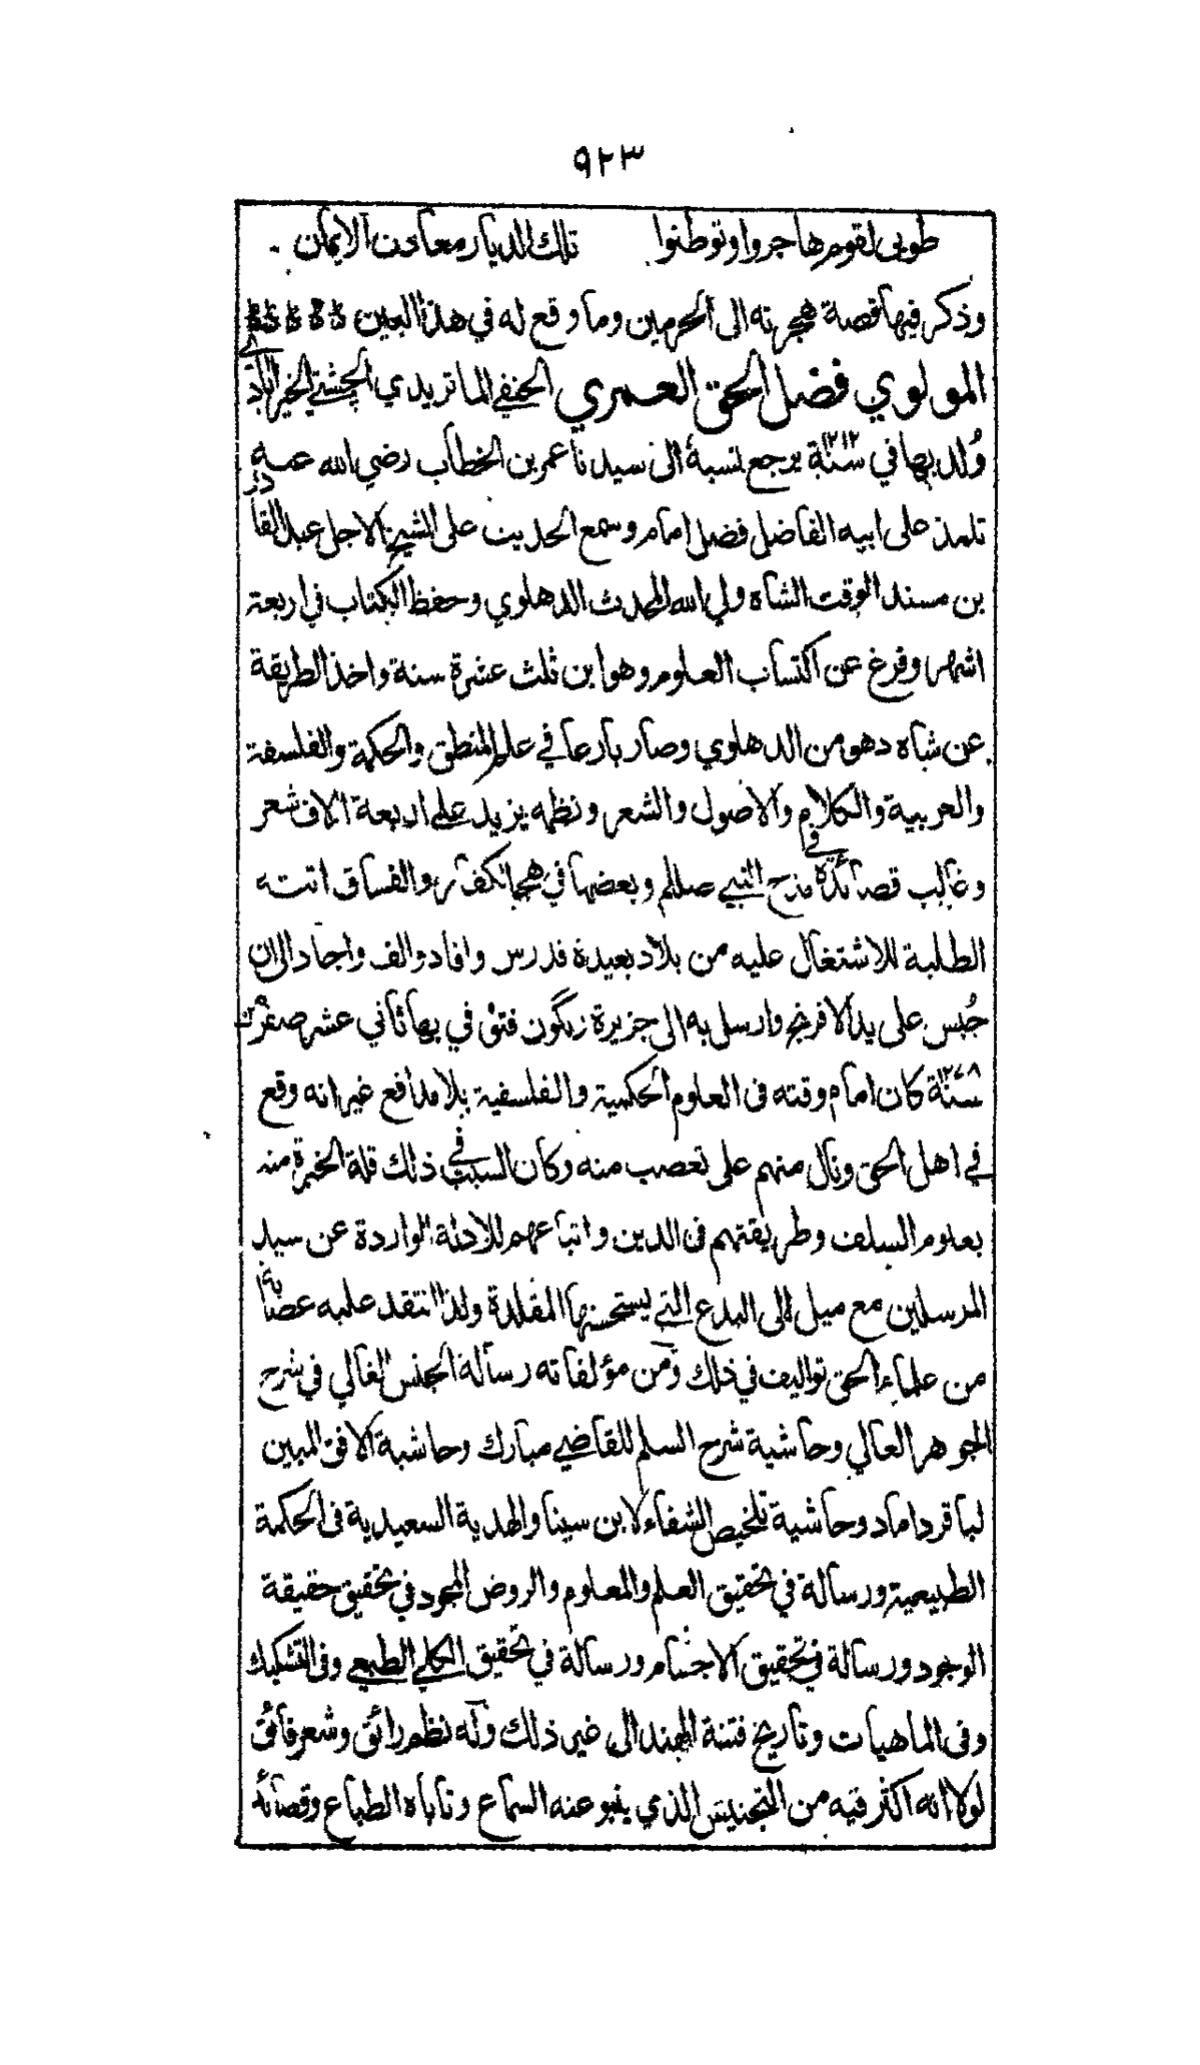 ٩٢٣
طوبى لقوم هاجروا وتوطنوا تلك الديار معادن الايمان
وذكر فيها قصة هجرته الى الحرمين وما وقع له في هذا البين
المولوي فضل الحق العمري الحنفي الماتريدي الچشتي الخيرآبادي
وُلد بها في سنة ١٢١٢ يرجع نسبه الى سيدنا عمر بن الخطاب رضي الله عنه
تلمذ على ابيه الفاضل فضل امام وسمع الحديث على الشيخ الاجل عبد القادر
بن مسند الوقت الشاه ولي الله المحدث الدهلوي وحفظ الكتاب في اربعة
اشهر وفرغ عن اكتساب العلوم وهو ابن ثلث عشرة سنة واخذ الطريقة
عن شاه دهومن الدهلوي وصار بارعا في علم المنطق والحكمة والفلسفة
والعربية والكلام والاصول والشعر ونظمه يزيد على اربعة الاف شعر
وغالب قصائده في مدح النبي صللم وبعضها في هجا الكفار والفساق اتته
الطلبة للاشتغال عليه من بلاد بعيدة فدرس وافاد والف واجاد الى ان
حُبس على يد الافرنج وارسل به الى جزيرة رنگون فتوفي بها ثاني عشر صفر من
سنة ١٢٧٨ كان امام وقته في العلوم الحكمية والفلسفية بلا مدافع غير انه وقع
في اهل الحق ونال منهم على تعصب منه وكان السبب في ذلك قلة الخبرة منه
بعلوم السلف وطريقتهم في الدين واتباعهم للادلة الواردة عن سيد
المرسلين مع ميل الى البدع التي يستحسنها المقلدة ولذا انتقد عليه عصابة
من علماء الحق تواليف في ذلك ومن مؤلفاته رسالة الجنس الغالي في شرح
الجوهر العالي وحاشية شرح السلم للقاضي مبارك وحاشية الافق المبين
لباقر داماد وحاشية تلخيص الشفاء لابن سينا والهدية السعيدية في الحكمة
الطبيعية ورسالة في تحقيق العلم والمعلوم والروض المجود في تحقيق حقيقة
الوجود ورسالة في تحقيق الاجسام ورسالة في تحقيق الكلي الطبعي وفي التشكيك
وفي الماهيات وتاريخ فتنة الهند الى غير ذلك وله نظم رائق وشعر فائق
لولا انه اكثر فيه من التجنيس الذي ينبو عنه السماع وتاباه الطباع وقصائد